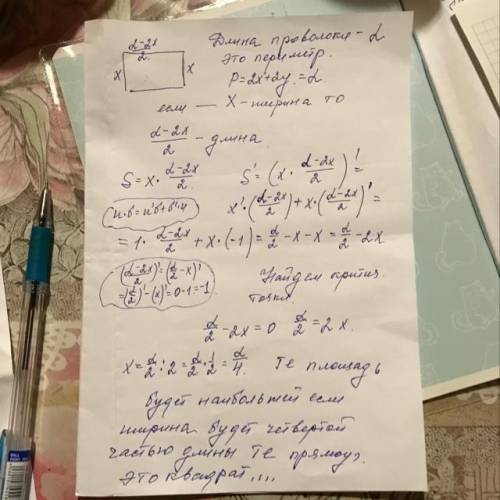 Длина проволоки - α
α-2x
2
это периметр.
x
x
P=2x+2y=α
если — x-ширина то
α-2x/2 - длина.
S=x·α-2x/2
S'=(x·α-2x/2)'=
x'·(α-2x/2)+x·(α-2x/2)'=
=1·α-2x/2+x·(-1)=α/2-x-x=α/2-2x
(α-2x/2)'=(α/2-x)'
=(α/2)'-(x)'=0-1=-1
Найдем критич.
точки.
α/2-2x=0 α/2=2x.
x=α/2:2=α/2·1/2=α/4. Те площадь
будет наибольшей если
ширина будет четвертой
частью длины Те прямоуг.
это квадрат....